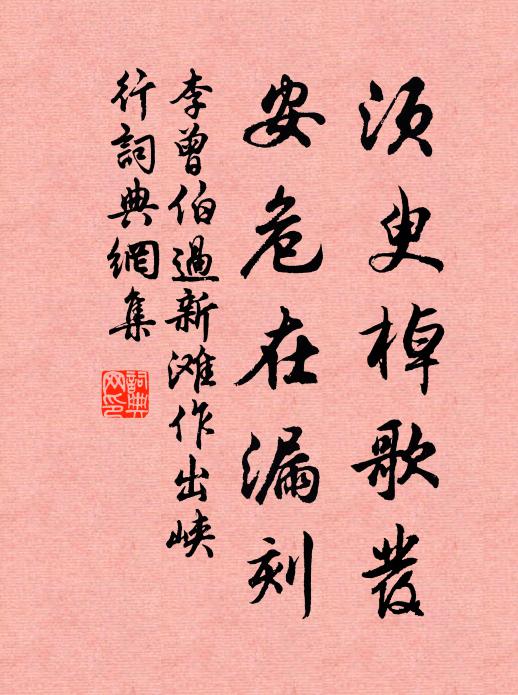 須臾棹歌發
安危在漏刻
李曾伯過新滩作出峽
行詞典網集
詞典网印